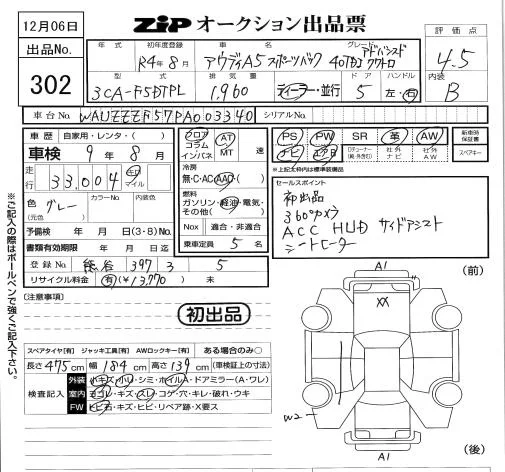 12月06日
ZiP オークション出品票
出品No.
302
評価点
4.5
内装
B
年式 初年度登録 車名 グレード
R4年8月 アウディA5 スポーツバック 40TDI クワトロ アドバンスド
型式 排気量 ドア ハンドル
3CA-F5DTPL 1,960 ディーラー・並行 5 左・右
車台No. WAUZZZF57PA003340 シリアルNo.
車歴 自家用・レンタ・( )
車検 9年8月
走行 33,004 キロ マイル
色 グレー (元色) カラーNo. 内装色
予備検 年 月 日(3・8)No.
書類有効期限 年 月 日迄
登録No. 熊谷 397 3 5
リサイクル料金 有(¥13,770) 未
フロア コラム インパネ AT MT 速
冷房
無・C・AC・AAC・( )
燃料
ガソリン・軽油・電気・その他( )
Nox 適合・非適合
乗車定員 5 名
PS PW SR 革 AW
ナビ エアB 社外ナビ 社外AW
新車時保証書
スペアキー
※上記○枠内は標準装備品
セールスポイント
初出品
360°カメラ
ACC HUD サイドアシスト
シートヒーター
※ご記入の際はボールペンで強くご記入下さい。
(注意事項)
初出品
スペアタイヤ[有] ジャッキ工具[有] AWロックキー[有] ある場合のみ○
長さ 475cm 幅 184cm 高さ 139cm (車検証上の寸法)
検査記入
外装 小キズ・小ヘコ・シミ・ホイルA・ドアミラー(A・ワレ)
室内 ヨゴレ・キズ・スレ・コゲ・穴・キレ・破れ・ウキ
FW トビ石・キズ・ヒビ・リペア跡・X要ス
A1
(前)
XX
W2
A1
(後)